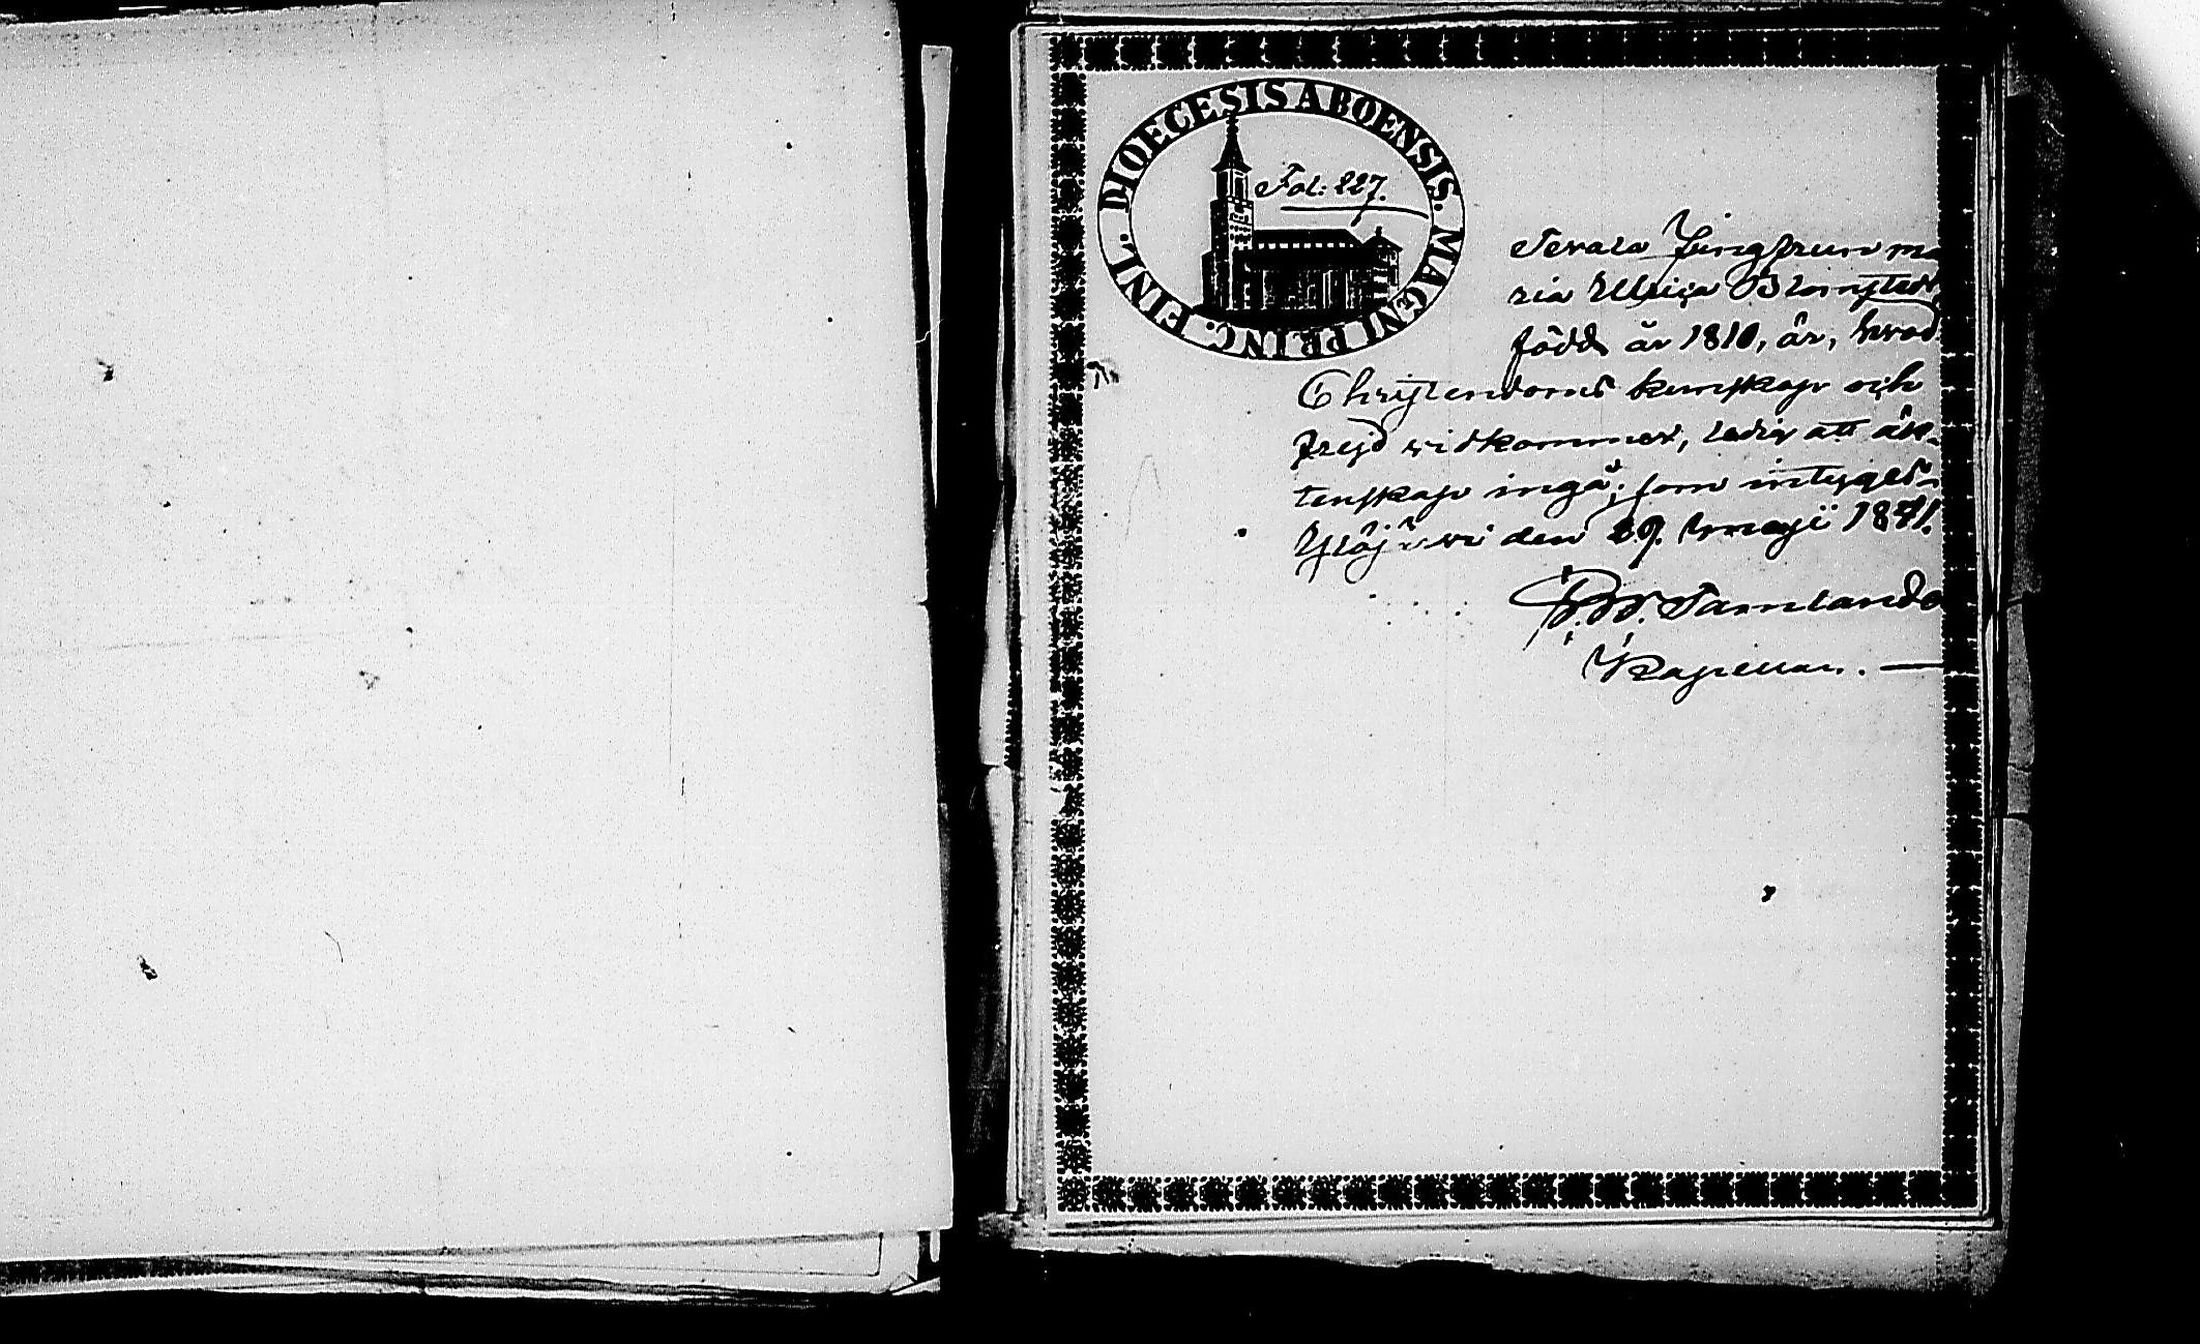 DIOECESIS ABOENSIS. MAGNI PRINC. FINL.
Fol: 227.
Jungfrun Ma
ria Ullrica Blomstedt
född år 1810, är, hvad
Christendoms kunskap och
frejd widkommer, ledig att äk-
tenskap ingå; som intygas.
den 29. Maji 1841.
Tamlande
Kapellan. —